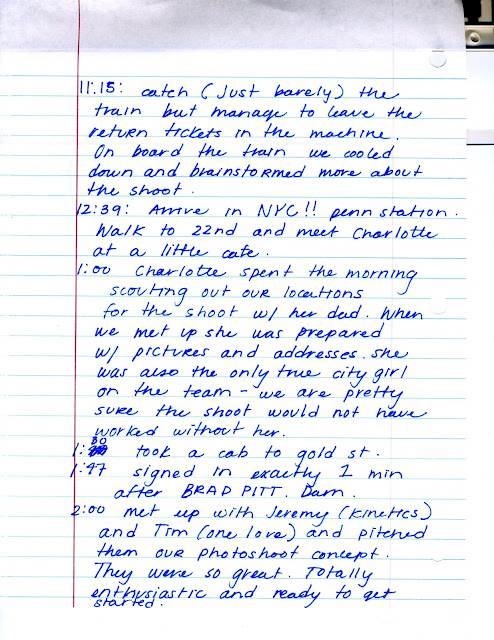 11:15: catch (Just barely) the
train but manage to leave the
return tickets in the machine.
On board the train we cooled
down and brainstormed more about
the shoot.
12:39: Arrive in NYC!! penn station.
Walk to 22nd and meet Charlotte
at a little cafe.
1:00 Charlotte spent the morning
scouting out our locations
for the shoot w/ her dad. When
we met up she was prepared
w/ pictures and addresses. she
was also the only true city girl
on the team - we are pretty
sure the shoot would not have
worked without her.
1:30 took a cab to gold st.
1:47 signed in exactly 1 min
after BRAD PITT. Darn.
2:00 met up with Jeremy (kinetics)
and Tim (one love) and pitched
them our photoshoot concept.
They were so great. Totally
enthusiastic and ready to get
started.